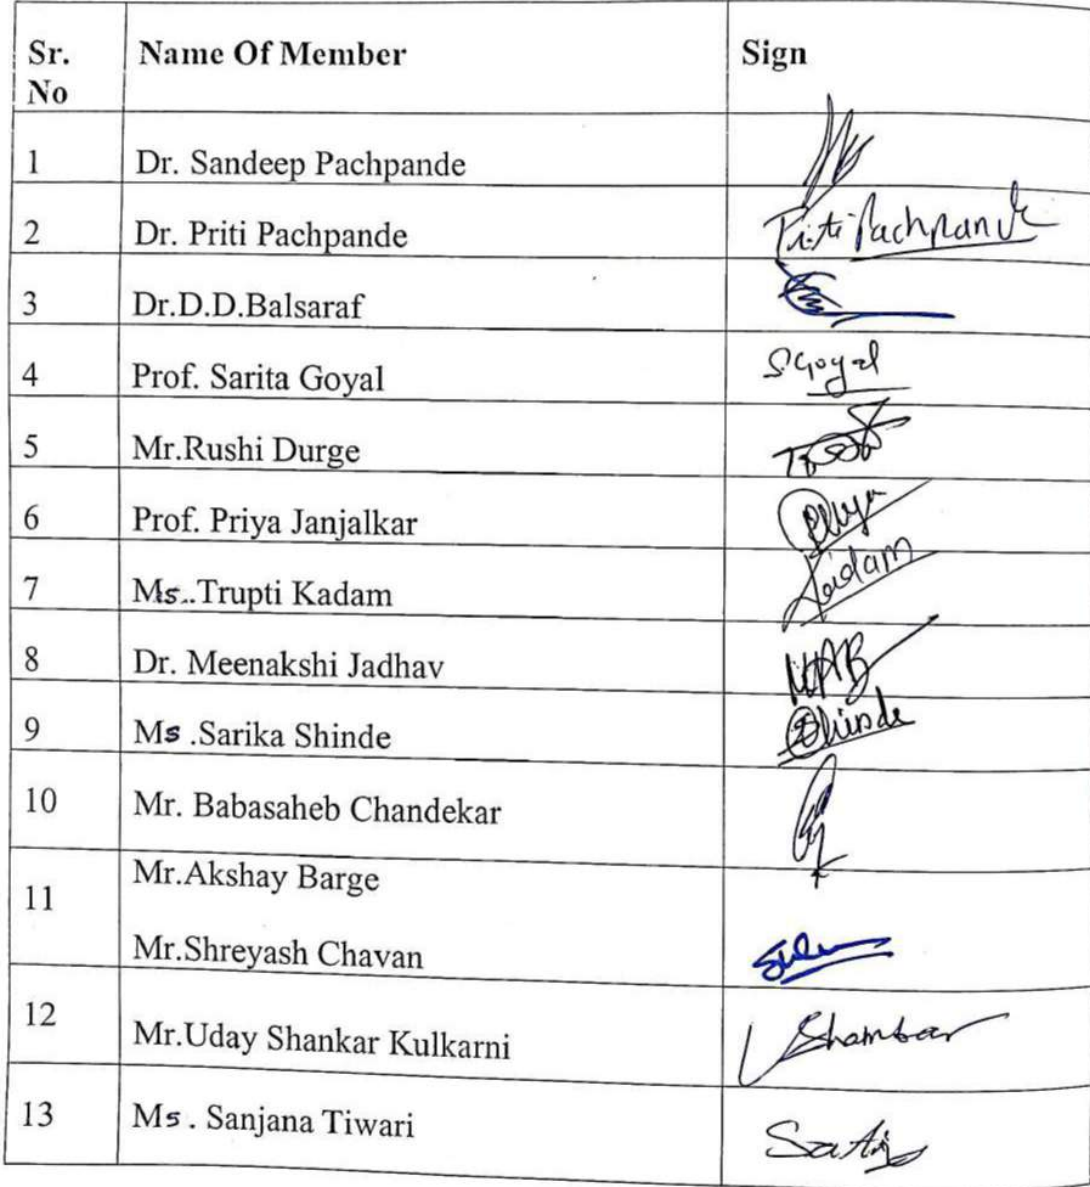 Sr. No Name Of Member Sign
1 Dr. Sandeep Pachpande
2 Dr. Priti Pachpande Priti Pachpande
3 Dr.D.D.Balsaraf
4 Prof. Sarita Goyal S.Goyal
5 Mr.Rushi Durge
6 Prof. Priya Janjalkar Priya
7 Ms..Trupti Kadam Kadam
8 Dr. Meenakshi Jadhav
9 Ms .Sarika Shinde Shinde
10 Mr. Babasaheb Chandekar
11 Mr.Akshay Barge
Mr.Shreyash Chavan
12 Mr.Uday Shankar Kulkarni
13 Ms. Sanjana Tiwari